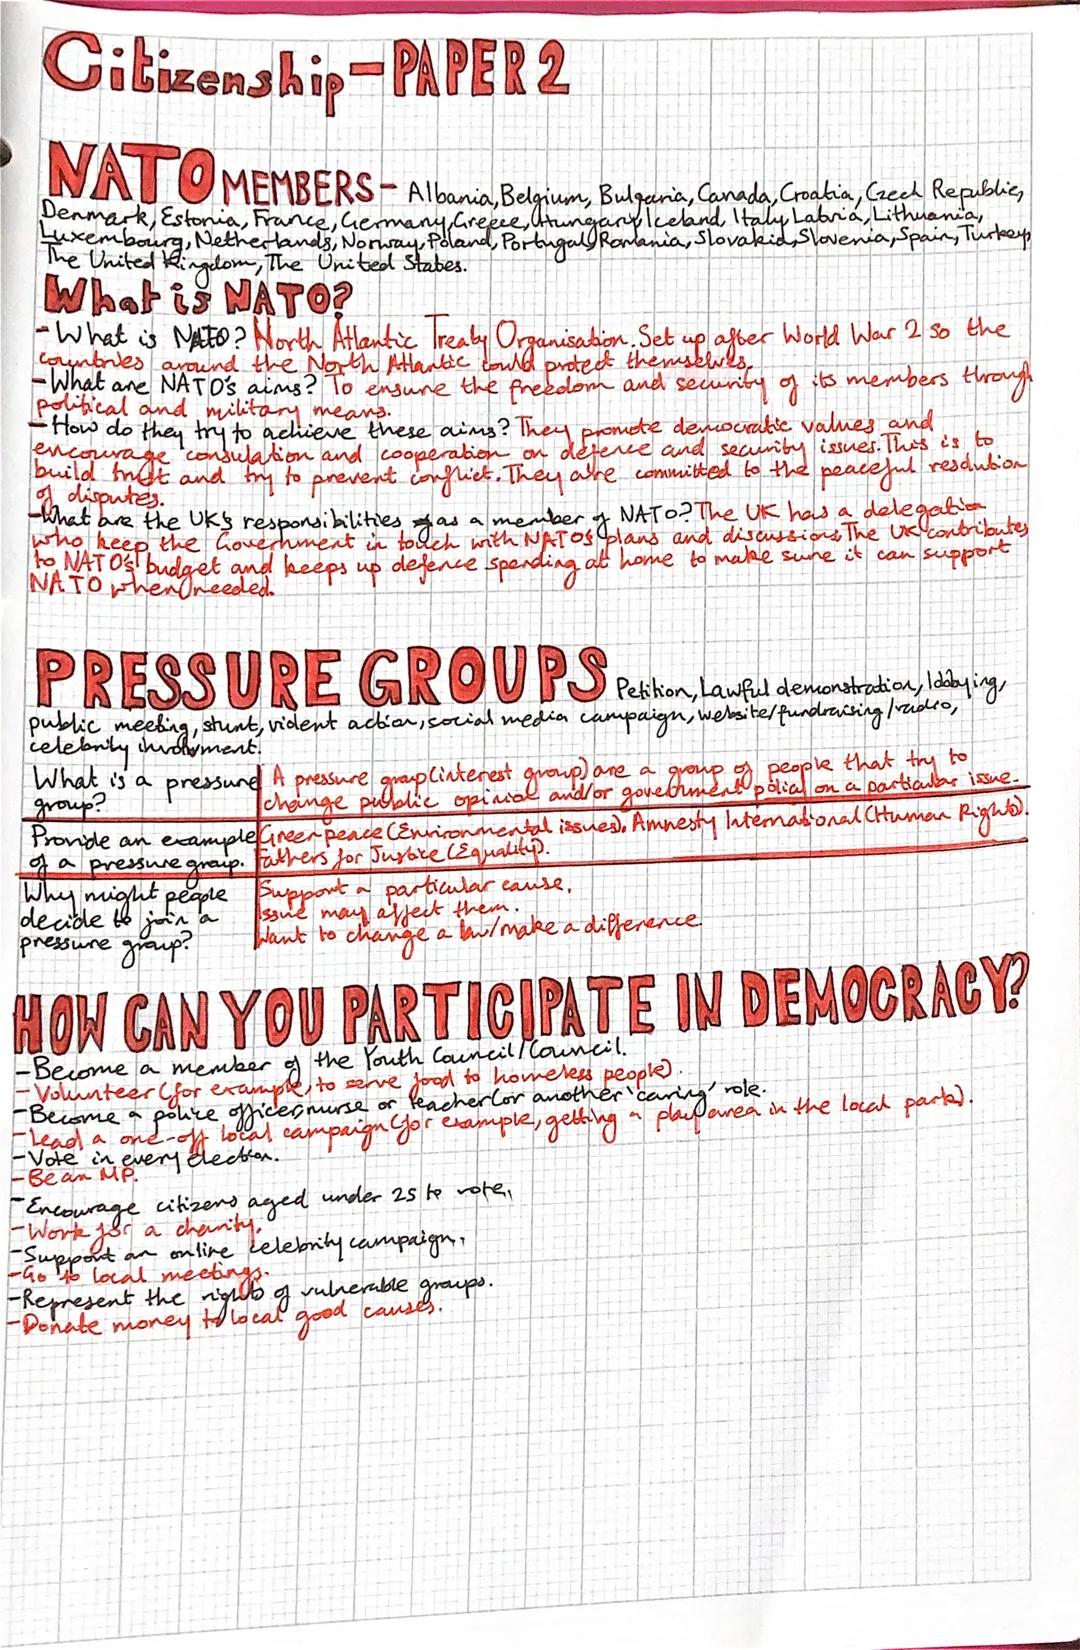 Citizenship-PAPER 2
NATO MEMBERS- Albania, Belgium, Bulgaria, Canada, Croatia, Czech Republic,
Denmark, Estonia, France, Germany, Greece, Hungary, Iceland, Italy, Latvia, Lithuania,
Luxembourg, Netherlands, Norway, Poland, Portugal, Romania, Slovakia, Slovenia, Spain, Turkey,
The United Kingdom, The United States.
What is NATO?
-What is NATO? North Atlantic Treaty Organisation. Set up after World War 2 so the
countries around the North Atlantic could protect themselves.
-What are NATO's aims? To ensure the freedom and security of its members through
political and military means.
-How do they try to achieve these aims? They promote democratic values and
encourage consulation and cooperation on defence and security issues. This is to
build trust and try to prevent conflict. They are committed to the peaceful resolution
of disputes.
-What are the UK's responsibilities as a member of NATO? The UK has a delegation
who keep the Government in touch with NATO's plans and discussions. The UK contributes
to NATO's budget and keeps up defence spending at home to make sure it can support
NATO when needed.
PRESSURE GROUPS Petition, Lawful demonstration, lobbying,
public meeting, stunt, violent action, social media campaign, website/fundraising/radio,
celebrity involvment.
What is a pressure group? A pressure group (interest group) are a group of people that try to
change public opinion and/or government on a particular issue.
Provide an example of a pressure group. Greenpeace (Environmental issues), Amnesty International (Human Rights).
Fathers for Justice (Equality).
Why might people decide to join a pressure group? Support a particular cause,
Issue may affect them.
Want to change a law/make a difference.
HOW CAN YOU PARTICIPATE IN DEMOCRACY?
-Become a member of the Youth Council/Council.
-Volunteer (for example, to serve food to homeless people).
-Become a police officer, nurse or teacher (or another 'caring' role.
-Lead a one-off local campaign (for example, getting a play area in the local park).
-Vote in every election.
-Be an MP.
-Encourage citizens aged under 25 to vote.
-Work for a charity.
-Support an online celebrity campaign.
-Go to local meetings.
-Represent the rights of vulnerable groups.
-Donate money to local good causes.